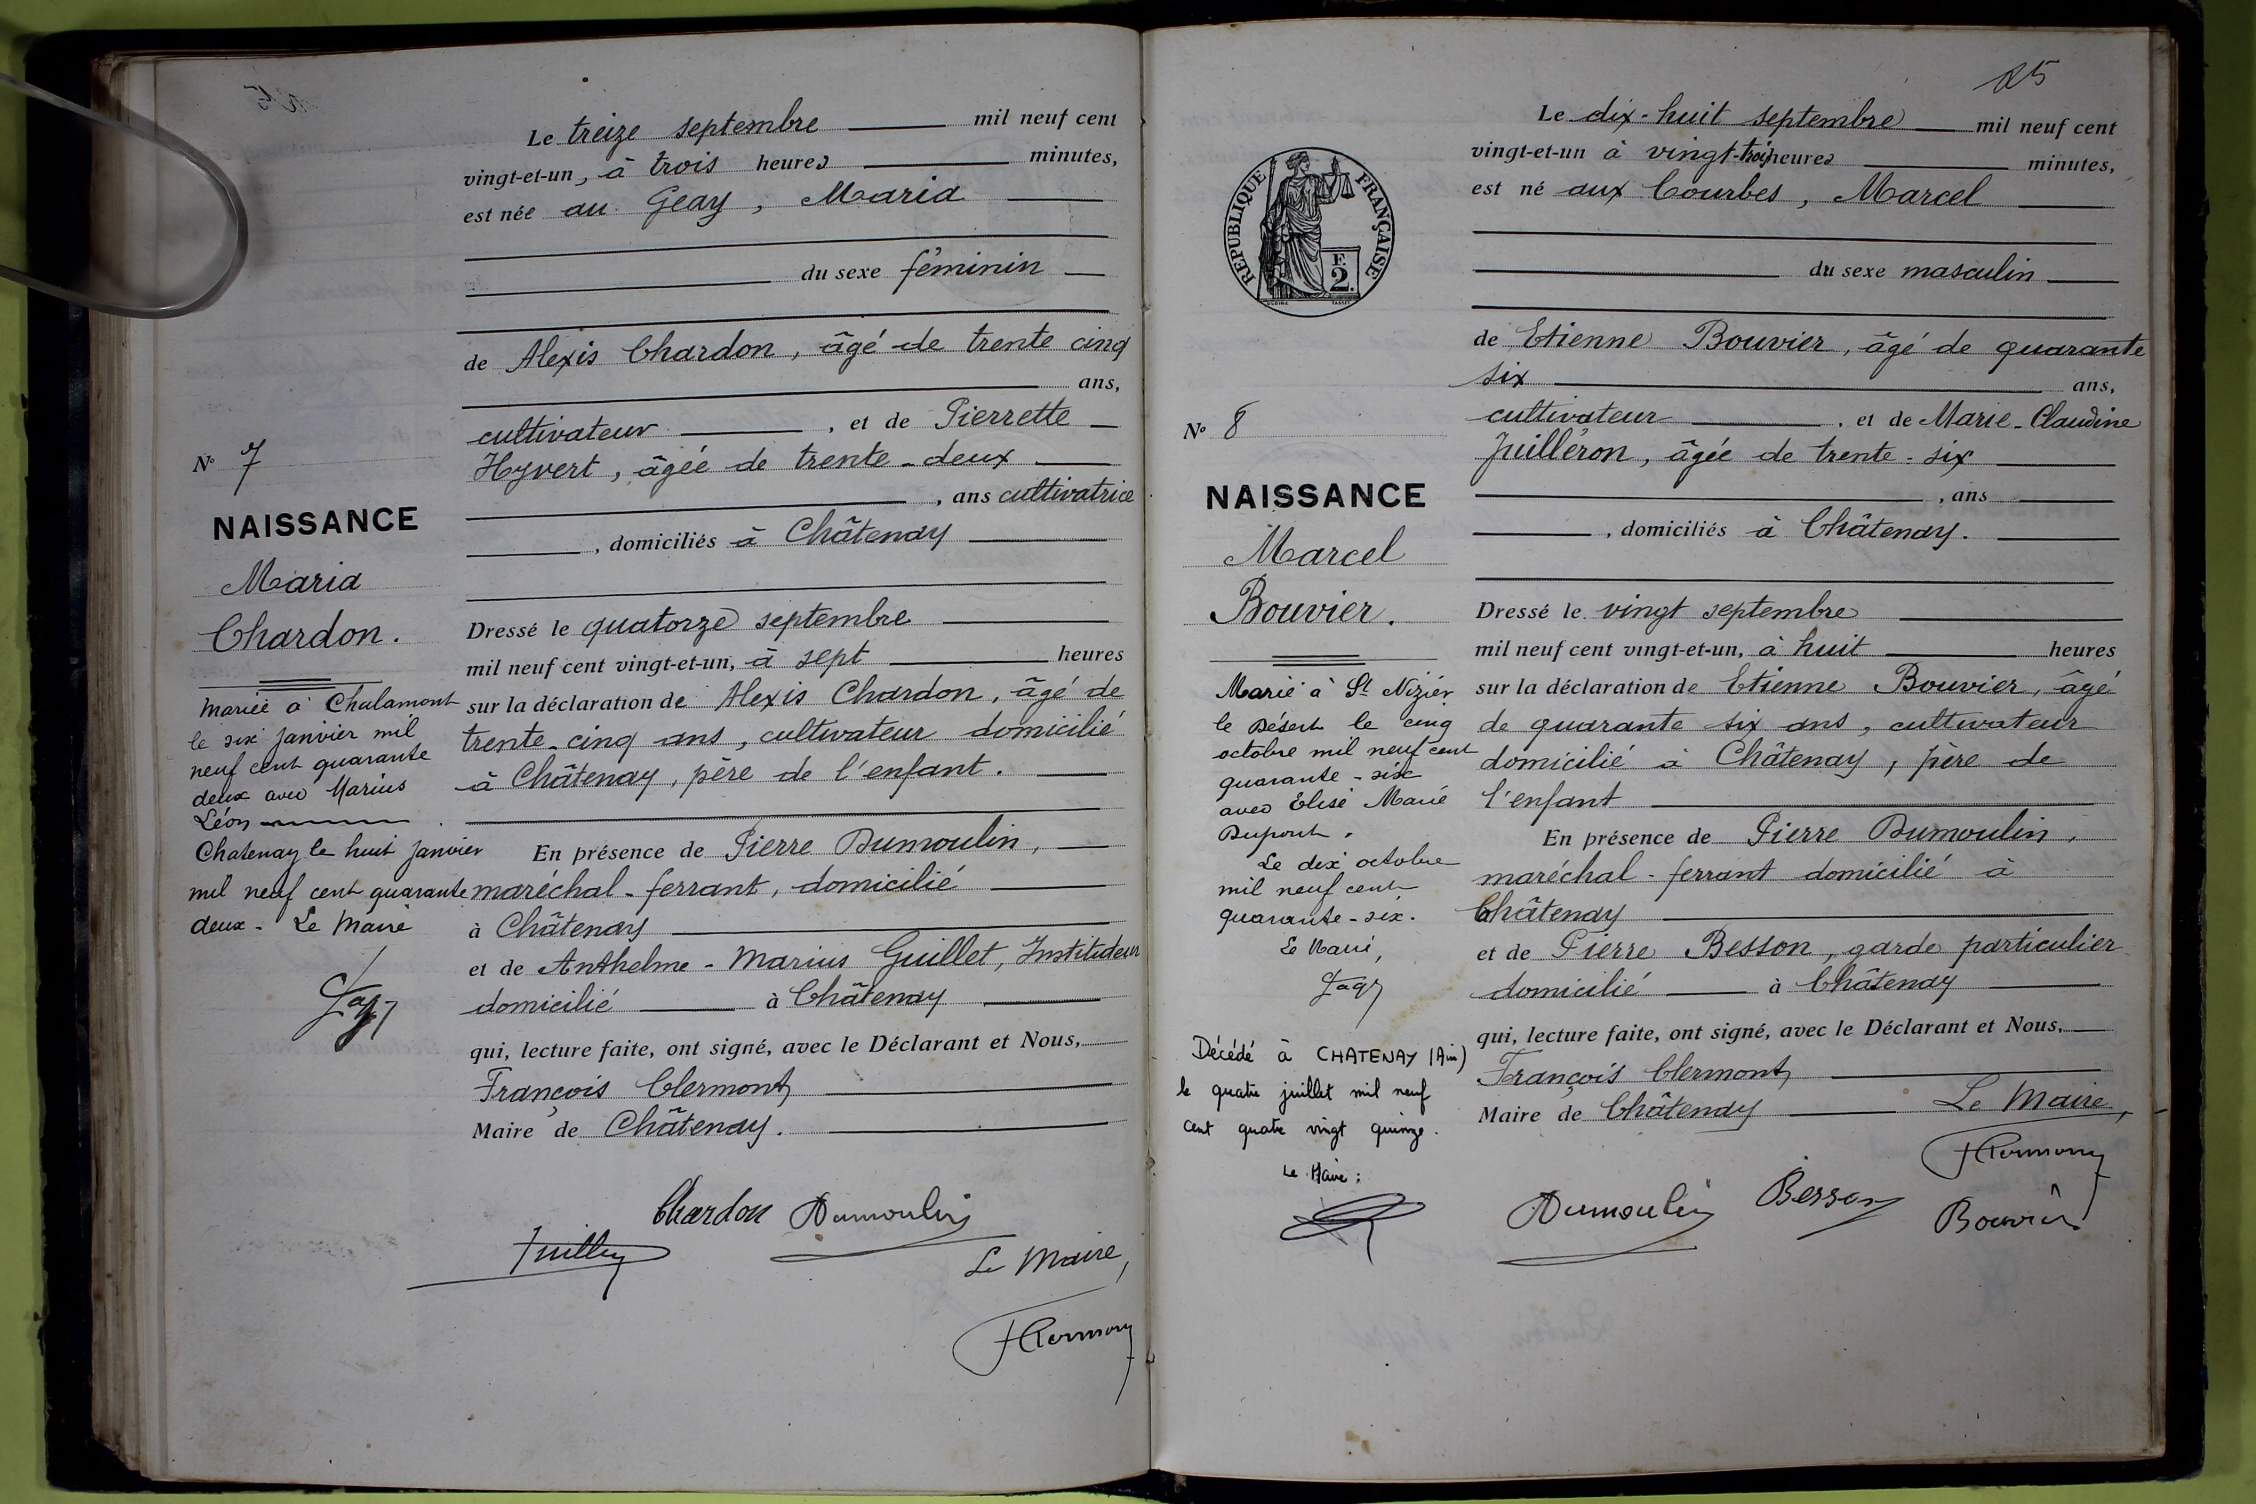 Le treize septembre mil neuf cent
vingt-et-un, à trois heures minutes,
est née au Geay, Maria
du sexe féminin
de Alexis Chardon, âgé de trente cinq
ans,
cultivateur, et de Pierrette
Hyvert, âgée de trente-deux
, ans cultivatrice
, domiciliés à Châtenay
Dressé le quatorze septembre
mil neuf cent vingt-et-un, à sept heures
sur la déclaration de Alexis Chardon, âgé de
trente-cinq ans, cultivateur domicilié
à Châtenay, père de l'enfant.
En présence de Pierre Dumoulin,
maréchal-ferrant, domicilié
à Châtenay
et de Anthelme-Marius Guillet, Instituteur
domicilié à Châtenay
qui, lecture faite, ont signé, avec le Déclarant et Nous,
François Clermont
Maire de Châtenay.
Chardon Dumoulin
Le Maire,
No 7
NAISSANCE
Maria
Chardon.
Mariée à Chalamont
le six janvier mil
neuf cent quarante
deux avec Marius
Léon
Chatenay le huit janvier
mil neuf cent quarante
deux - Le Maire
25
Le dix-huit septembre mil neuf cent
vingt-et-un à vingt-trois heures minutes,
est né aux Courbes, Marcel
du sexe masculin
de Etienne Bouvier, âgé de quarante
six ans,
cultivateur, et de Marie-Claudine
Juilléron, âgée de trente-six
, ans
, domiciliés à Châtenay.
Dressé le vingt septembre
mil neuf cent vingt-et-un, à huit heures
sur la déclaration de Etienne Bouvier, âgé
de quarante six ans, cultivateur
domicilié à Châtenay, père de
l'enfant
En présence de Pierre Dumoulin,
maréchal-ferrant domicilié à
Châtenay
et de Pierre Besson, garde particulier
domicilié à Châtenay
qui, lecture faite, ont signé, avec le Déclarant et Nous,
François Clermont
Maire de Châtenay Le Maire,
Dumoulin Besson Bouvier
REPUBLIQUE FRANÇAISE
F.
2.
No 8
NAISSANCE
Marcel
Bouvier.
Marié à St Nizier
le Désert le cinq
octobre mil neuf cent
quarante-six
avec Elise Marie
Dupont.
Le dix octobre
mil neuf cent
quarante-six.
Le Maire,
Décédé à CHATENAY (Ain)
le quatre juillet mil neuf
cent quatre vingt quinze.
Le Maire :